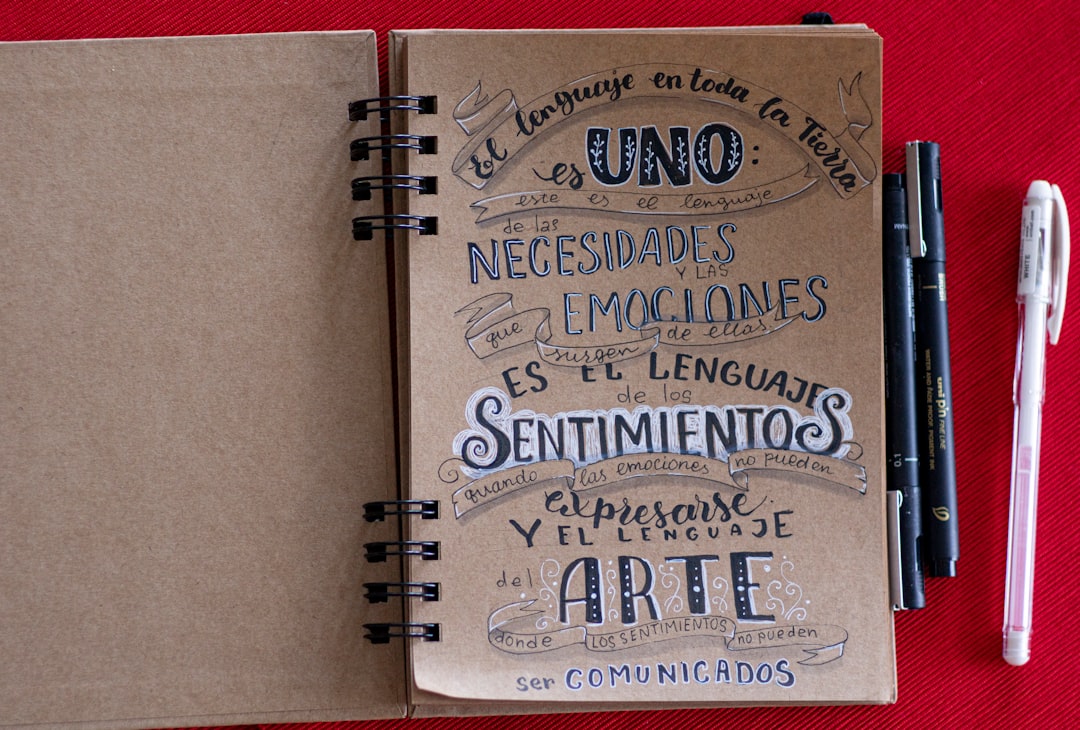 El lenguaje en toda la Tierra
es UNO:
este es el lenguaje
de las
NECESIDADES
Y LAS
EMOCIONES
que surgen de ellas
ES EL LENGUAJE
de los
SENTIMIENTOS
quando las emociones no pueden
expresarse
Y EL LENGUAJE
del ARTE
donde LOS SENTIMIENTOS no pueden
ser COMUNICADOS
0.1
uni pin FINE LINE
WATER AND FADE PROOF, PIGMENT INK
WHITE